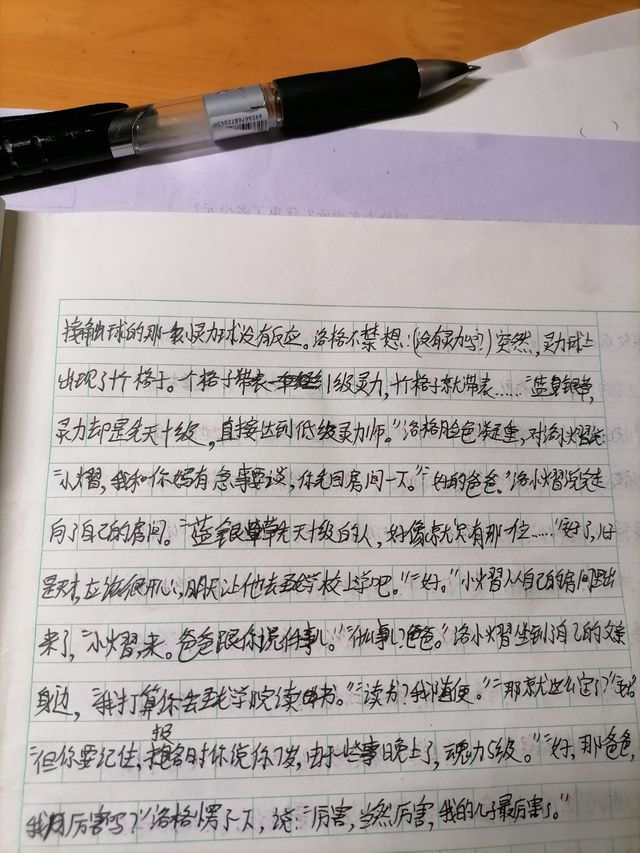 6926676872041
接触球的那一刻灵力球没有反应。洛格不禁想:(没有灵力吗?)突然,灵力球上
出现了十个格子。一个格子带表1级灵力,十个格子就带表……“蓝银草,
灵力却是先天十级,直接达到低级灵力师。”洛格脸色凝重,对洛小熠说:
“小熠,我和你妈有急事要谈,你先回房间一下。”“好的爸爸。”洛小熠说完走
向了自己的房间。“蓝银草先天十级的人,好像就只有那一位……”“好了,儿子
是天才,应该很开心,明天让他去学校上学吧。”“好。”小熠从自己的房间里出
来了,“小熠,来。爸爸跟你说件事儿。”“什么事儿?爸爸。”洛小熠坐到了自己的父亲
身边,“我打算你去学院读书。”“读书?我随便。”“那就这么定了”
“但你要记住,报名时你说你7岁,由于一些事日晚上了,魂力5级。”“好,那爸爸,
我厉害吗?”洛格愣了一下,说:“厉害,当然厉害,我的儿子最厉害了。”